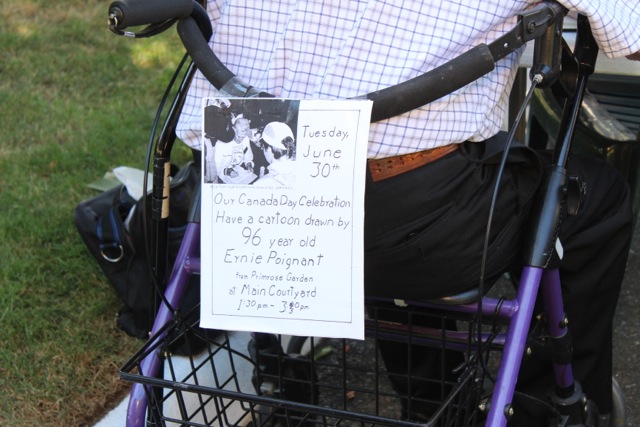 Tuesday,
June
30th
Our Canada Day Celebration
Have a cartoon drawn by
96 year old
Ernie Poignant
from Primrose Garden
at Main Courtyard
1:30pm - 3:30pm